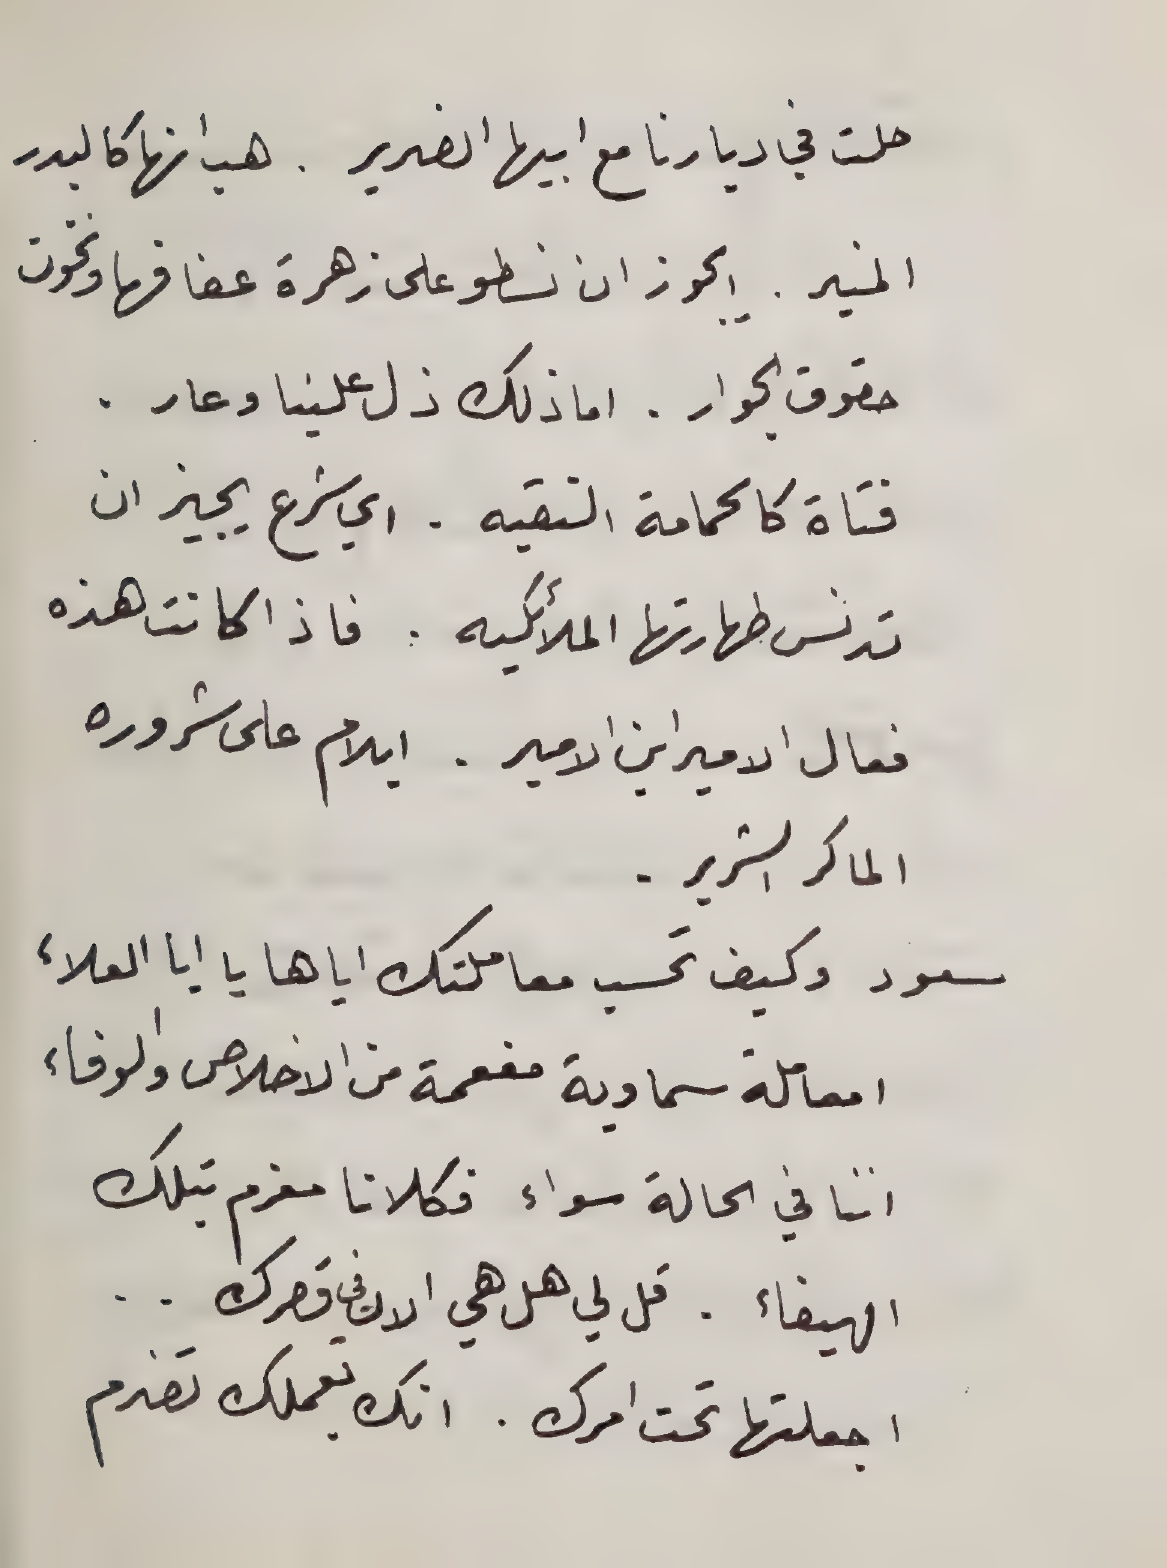 حلت في ديارنا مع ابيها الضرير . هب انها كالبدر
المنير . ايجوز ان نسطو على زهرة عفافها ونخون
حقوق الجوار . اما ذلك ذل علينا وعار .
فتاة كالحمامة النقيه . اي شرع يجيز ان
تدنس طهارتها الملائكيه . فاذا كانت هذه
فعال الامير ابن الامير . ايلام على شروره
الماكر الشرير .
سعود وكيف تحسب معاملتك اياها يا ابا العلاء
امعاملة سماوية مفعمة من الاخلاص والوفاء
اننا في الحالة سواء فكلانا مغرم بتلك
الهيفاء . قل لي هل هي الان في قصرك . .
اجعلتها تحت امرك . انك بعملك تضرم